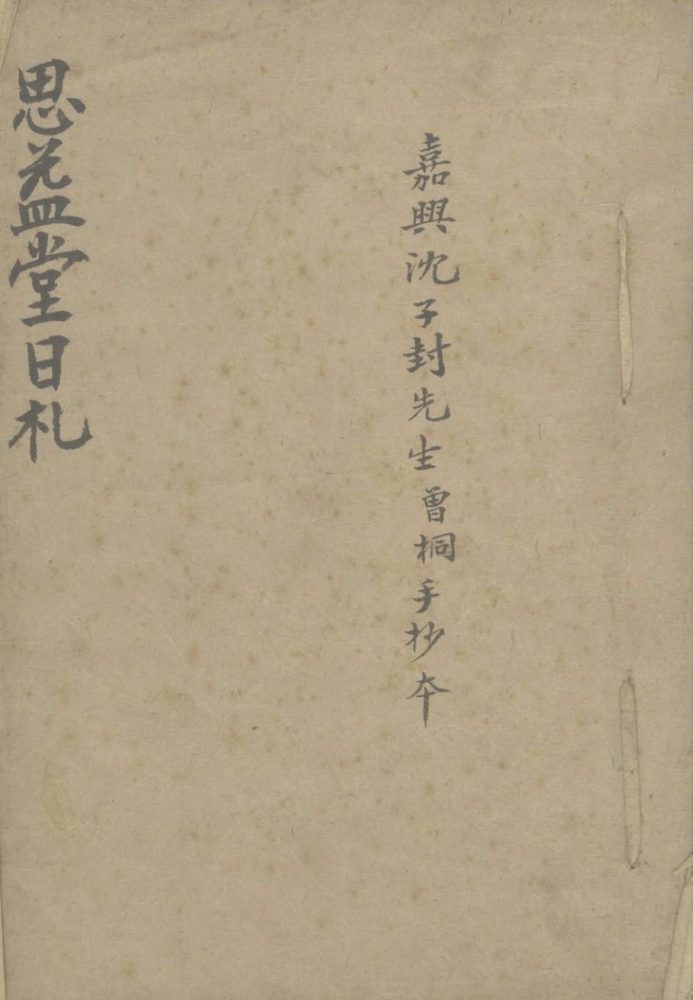 嘉興沈子封先生曾桐手抄本
思益堂日札